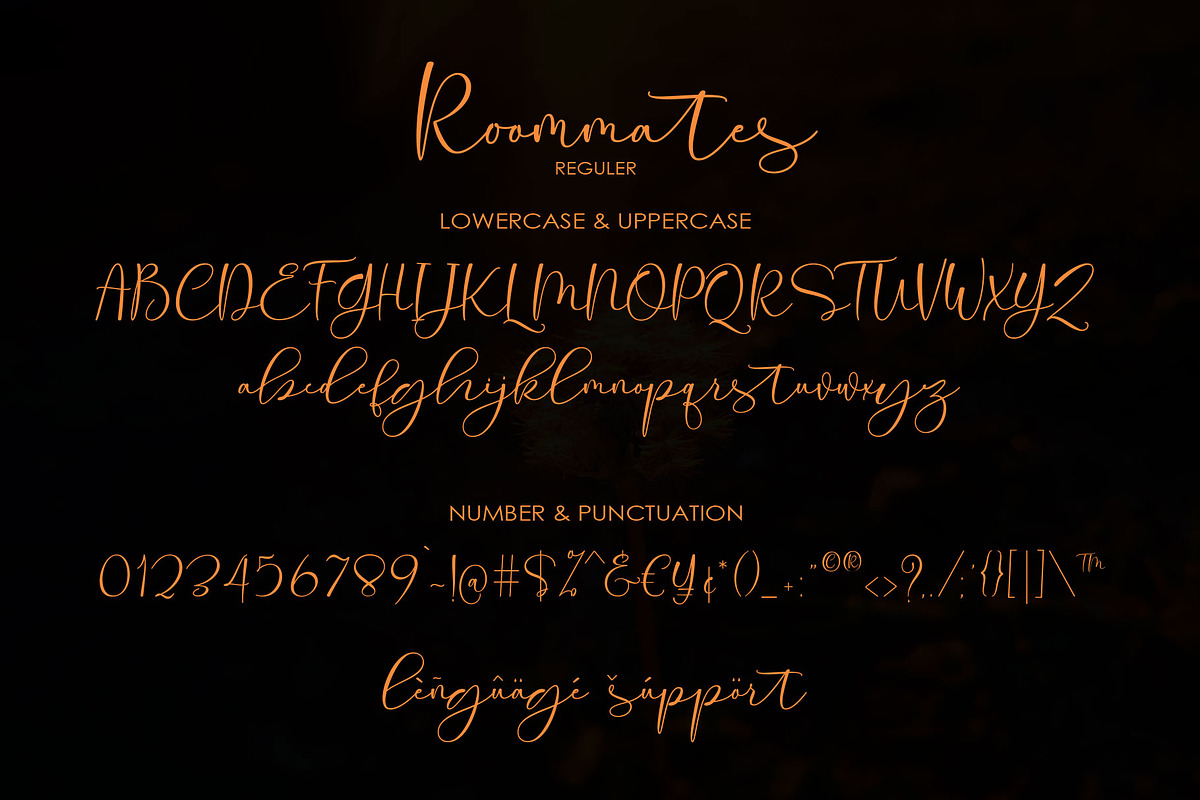 Roommates
REGULER
LOWERCASE & UPPERCASE
ABCDEFGHIJKLMNOPQRSTUVWXYZ
abcdefghijklmnopqrstuvwxyz
NUMBER & PUNCTUATION
0123456789`~!@#$%^&€¥¢*()_+:"©®<>?,./;'{}[|]\™
lèñgûägé šúppört